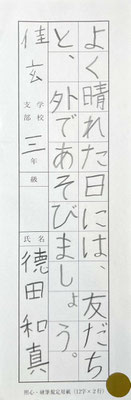 よく晴れた日には、友だち
と、外であそびましょう。
佳玄
学校
支部
三年
級
氏名
徳田和真
用心・硬筆規定用紙(12字×2行)